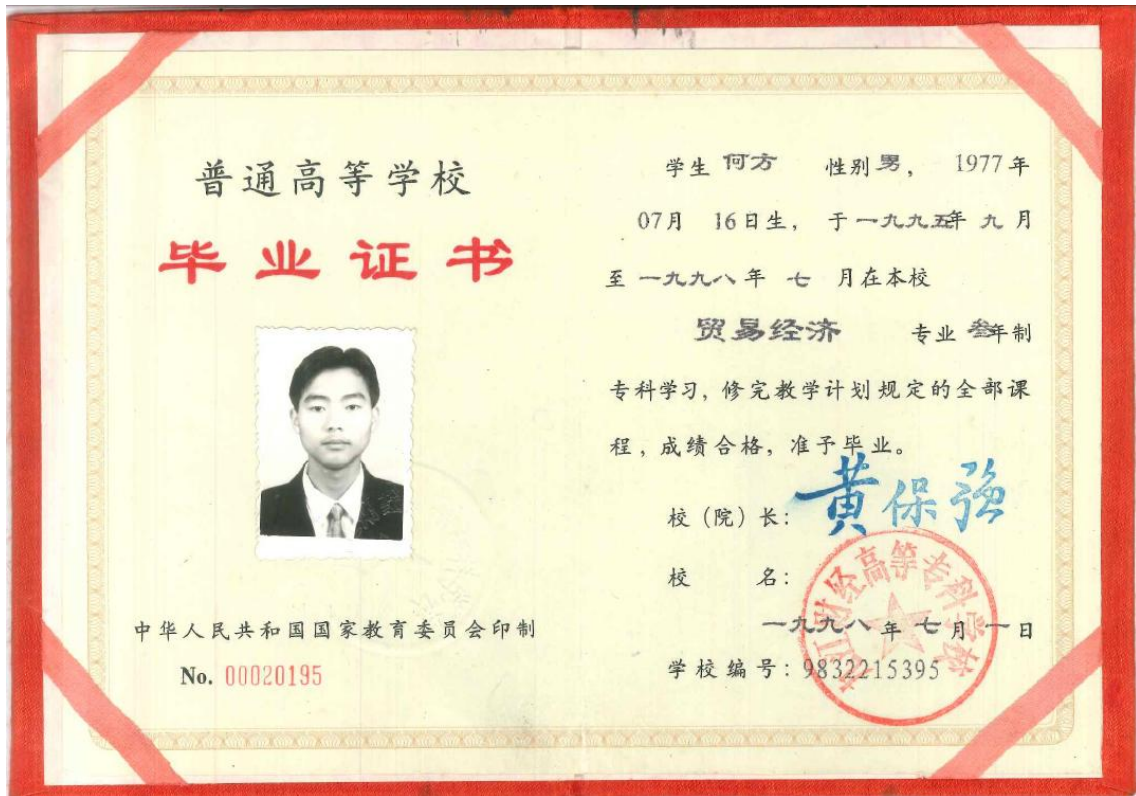 普通高等学校
毕业证书
中华人民共和国国家教育委员会印制
No. 00020195
学生 何方 性别 男， 1977年
07月 16日生， 于一九九五年 九 月
至 一九九八 年 七 月在本校
贸易经济 专业 叁年制
专科学习，修完教学计划规定的全部课
程，成绩合格，准予毕业。
校（院）长： 黄保强
校 名：
财经高等专科学校
一九九八 年 七 月 一 日
学校编号：9832215395